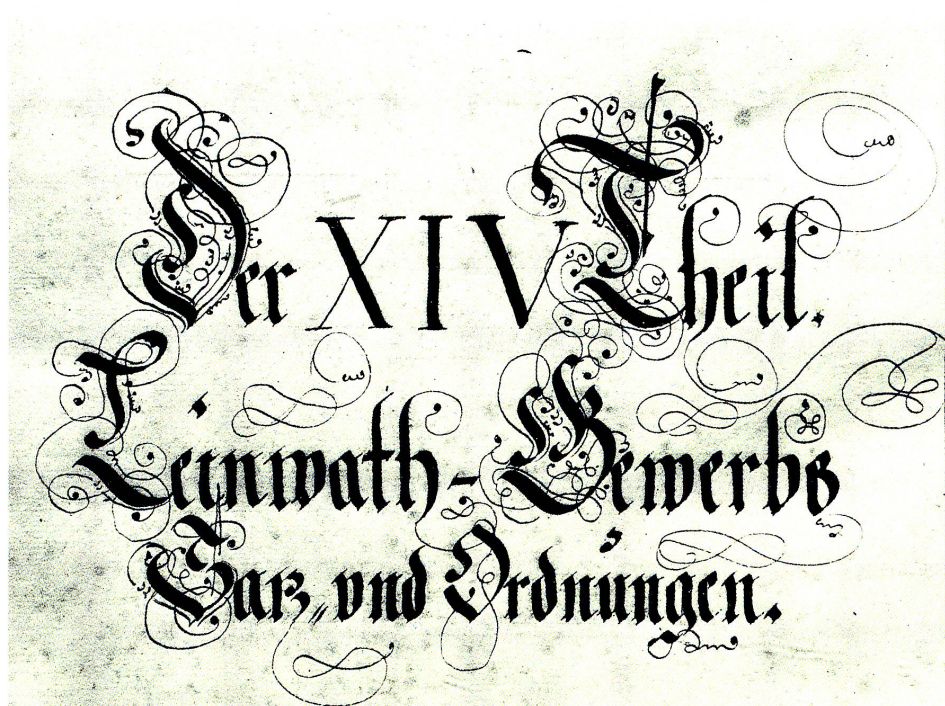 Der XIV Theil.
Leinwath-Gewerbs
Satz„ vnd Ordnungen.